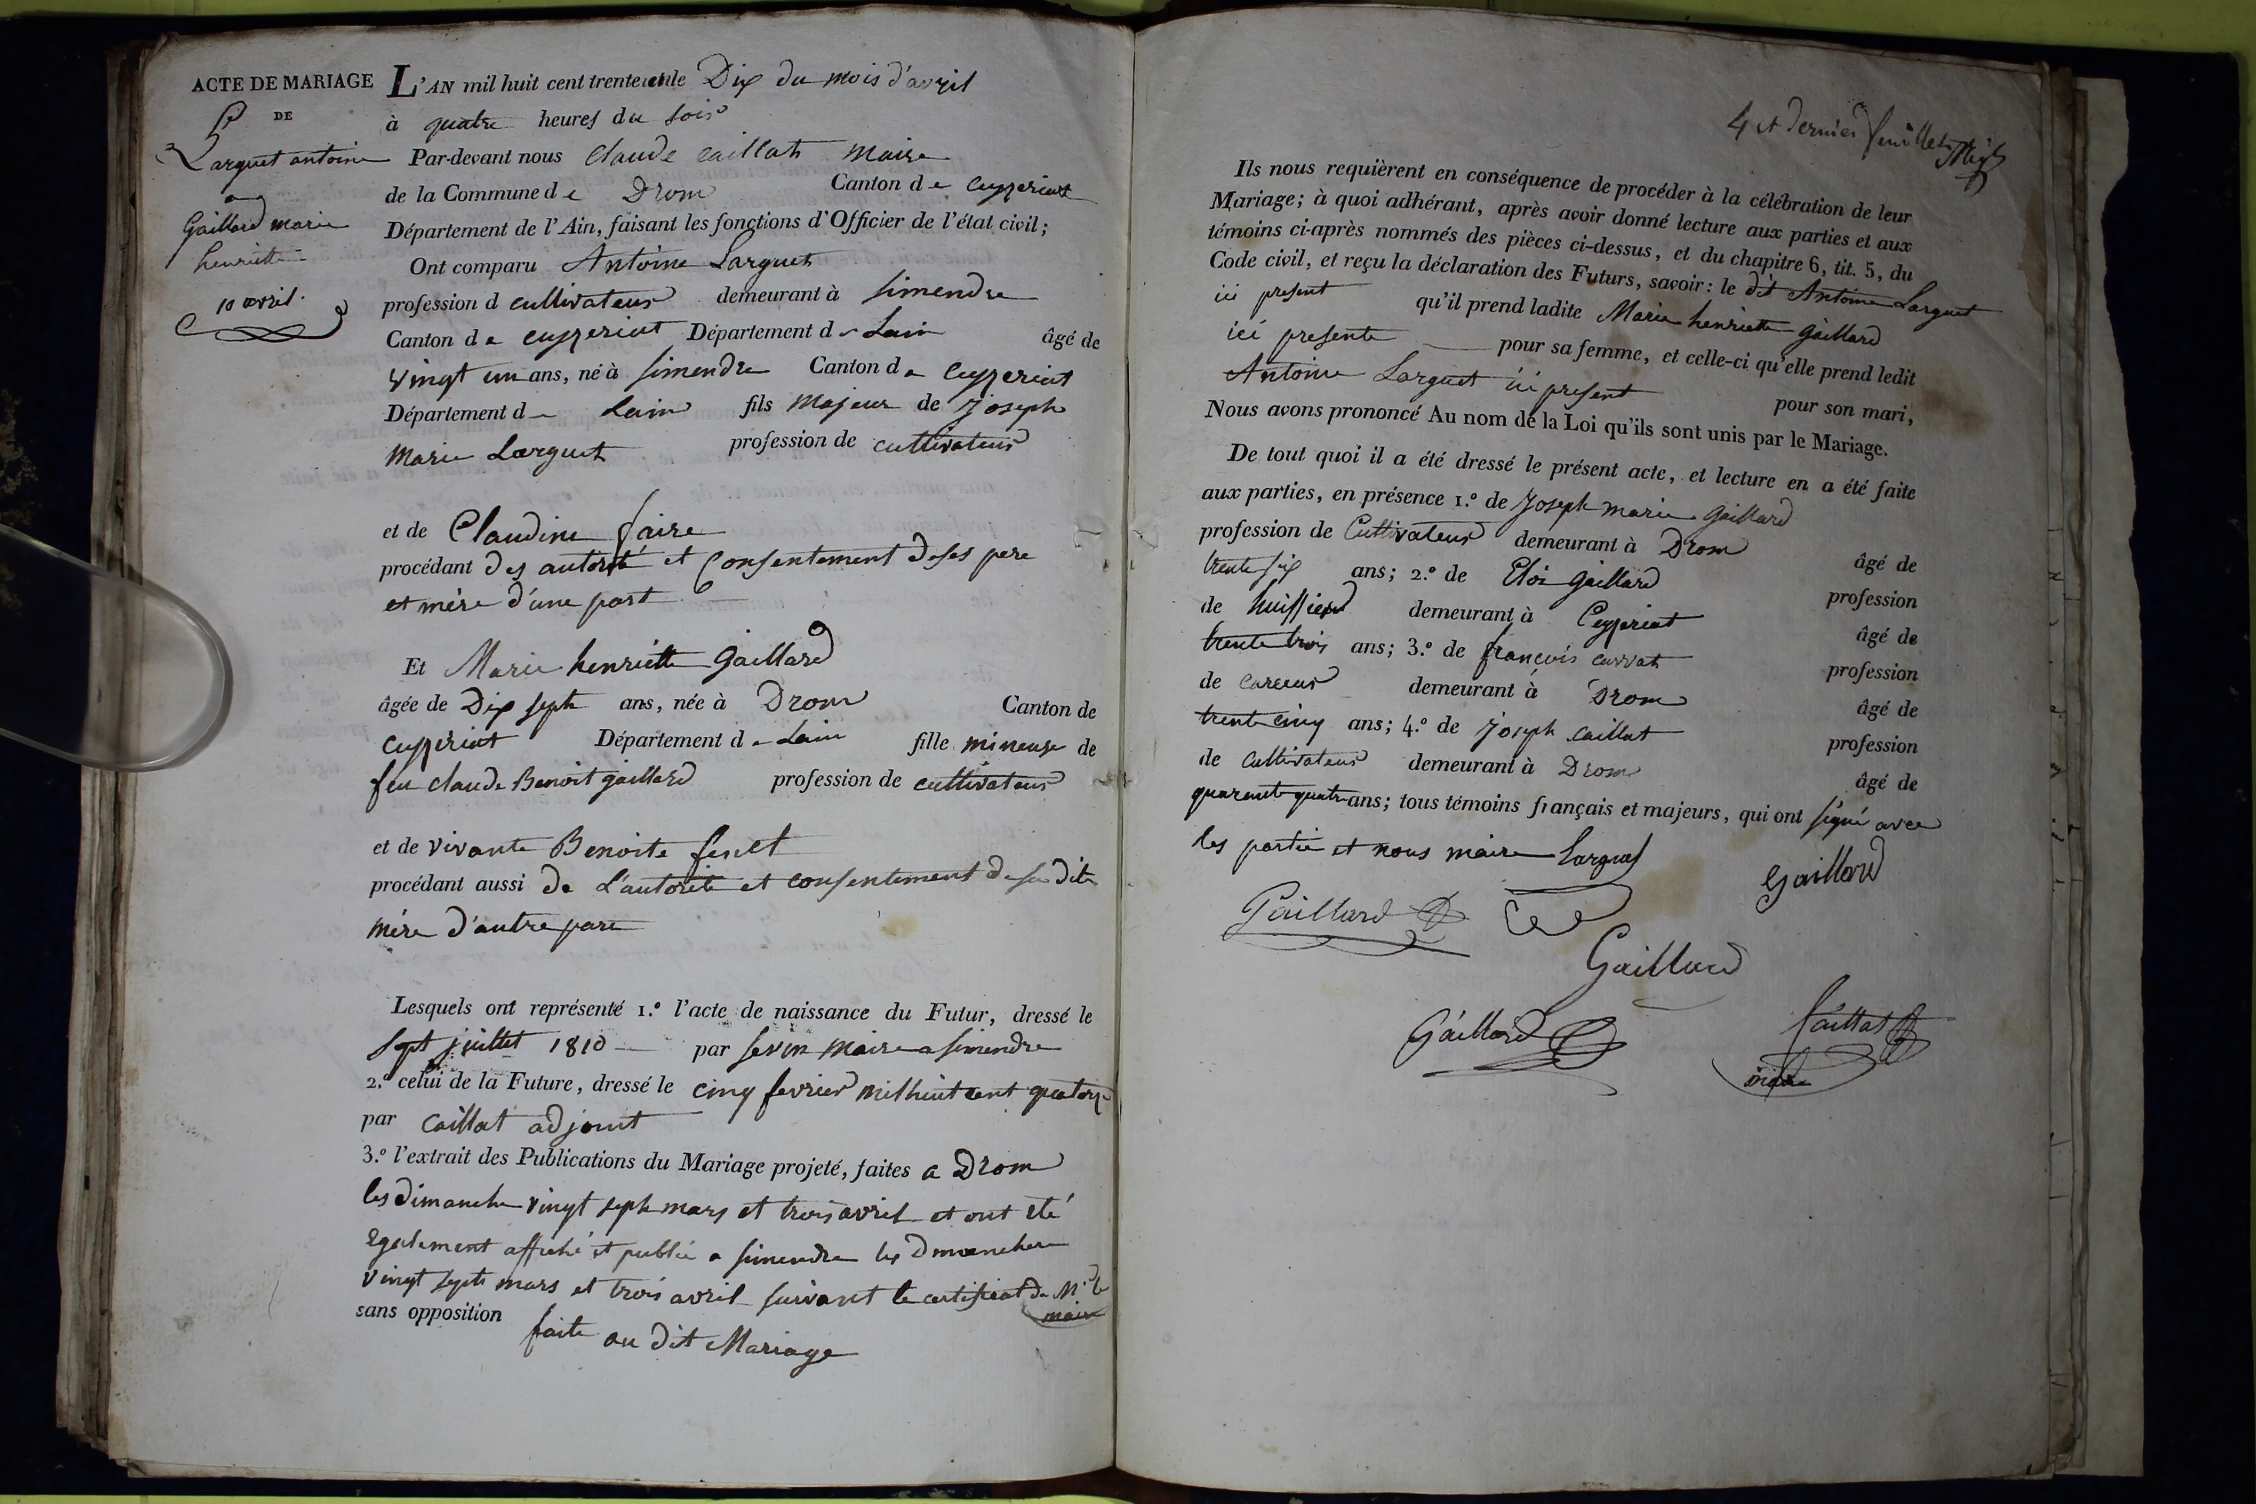 ACTE DE MARIAGE
DE
Larguet antoine
Gaillard marie
henriette
10 avril.
L'AN mil huit cent trente un le Dix du mois d'avril
à quatre heures du soir
Par-devant nous Claude Caillat Maire
de la Commune de Drom Canton de Ceyzeriat
Département de l'Ain, faisant les fonctions d'Officier de l'état civil;
Ont comparu Antoine Larguet
profession d cultivateur demeurant à Simendre
Canton de Ceyzeriat Département de Lain âgé de
vingt un ans, né à Simendre Canton de Ceyzeriat
Département de Lain fils Majeur de Joseph
Marie Larguet profession de cultivateur
et de Claudine faire
procédant des autorité et Consentement de ses pere
et mére d'une part
Et Marie henriette Gaillard
âgée de Dix sept ans, née à Drom Canton de
Ceyzeriat Département de Lain fille mineure de
feu claude Benoit gaillard profession de cultivateur
et de vivante Benoite
procédant aussi de L'autorité et consentement de sa dite
mére d'autre part
Lesquels ont représenté 1.º l'acte de naissance du Futur, dressé le
Sept juillet 1810 par sevin Maire a Simendre
2.º celui de la Future, dressé le cinq fevrier mil huit cent quatorze
par Caillat adjoint
3.º l'extrait des Publications du Mariage projeté, faites a Drom
les dimanche vingt sept mars et trois avril et ont été
Egalement affiché et publié a simendre les dimanche
vingt sept mars et trois avril suivant le certificat de Mr le
maire
sans opposition faite au dit Mariage
4 et dernier feuillet
Ils nous requièrent en conséquence de procéder à la célébration de leur
Mariage; à quoi adhérant, après avoir donné lecture aux parties et aux
témoins ci-après nommés des pièces ci-dessus, et du chapitre 6, tit. 5, du
Code civil, et reçu la déclaration des Futurs, savoir: le dit Antoine Larguet
ici present qu'il prend ladite Marie henriette Gaillard
ici presente pour sa femme, et celle-ci qu'elle prend ledit
Antoine Larguet ici present pour son mari,
Nous avons prononcé Au nom de la Loi qu'ils sont unis par le Mariage.
De tout quoi il a été dressé le présent acte, et lecture en a été faite
aux parties, en présence 1.º de Joseph marie Gaillard
profession de Cultivateur demeurant à Drom âgé de
trente six ans; 2.º de Eloi Gaillard profession
de huissier demeurant à Ceyzeriat âgé de
trente trois ans; 3.º de françois currat profession
de demeurant à Drom âgé de
trente cinq ans; 4.º de Joseph Caillat profession
de Cultivateur demeurant à Drom âgé de
quarante quatre ans; tous témoins français et majeurs, qui ont signé avec
les partie et nous maire Larguet
Gaillard
Gaillard
Gaillard
Gaillard
Caillat
maire